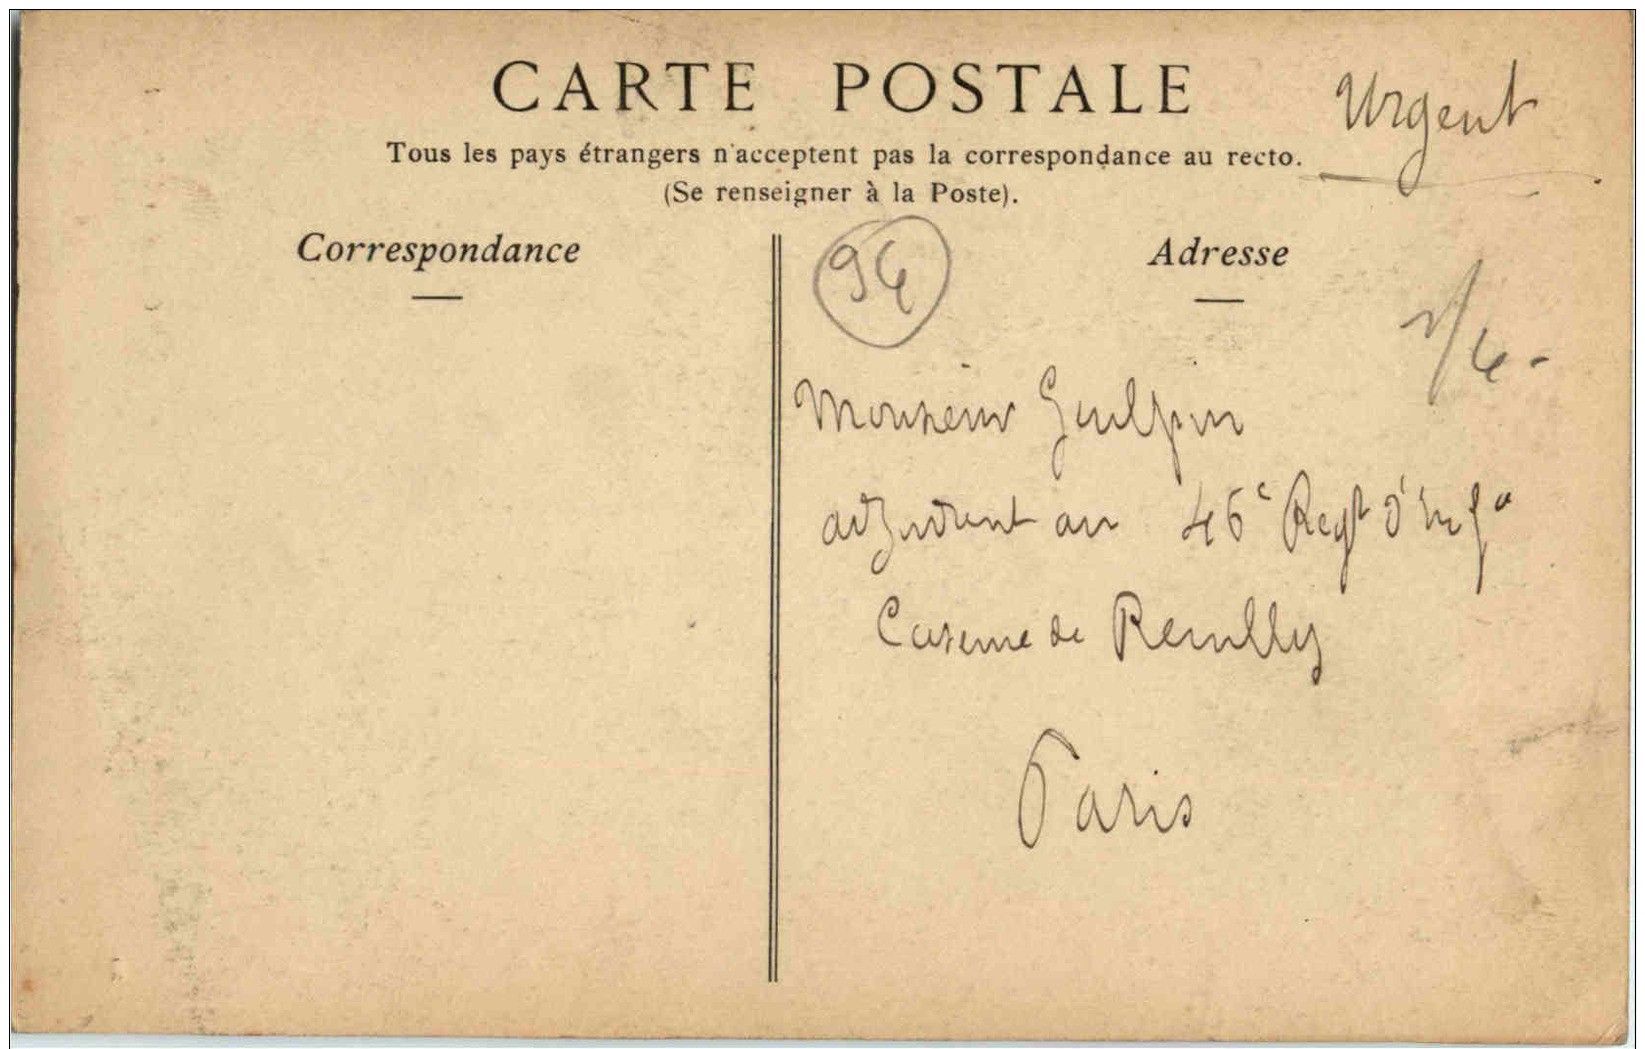 CARTE POSTALE
Urgent
Tous les pays étrangers n'acceptent pas la correspondance au recto.
(Se renseigner à la Poste).
Correspondance
94
Adresse
Monsieur
adjudant au 46e Regt d'Infa
Caserne de Reuilly
Paris